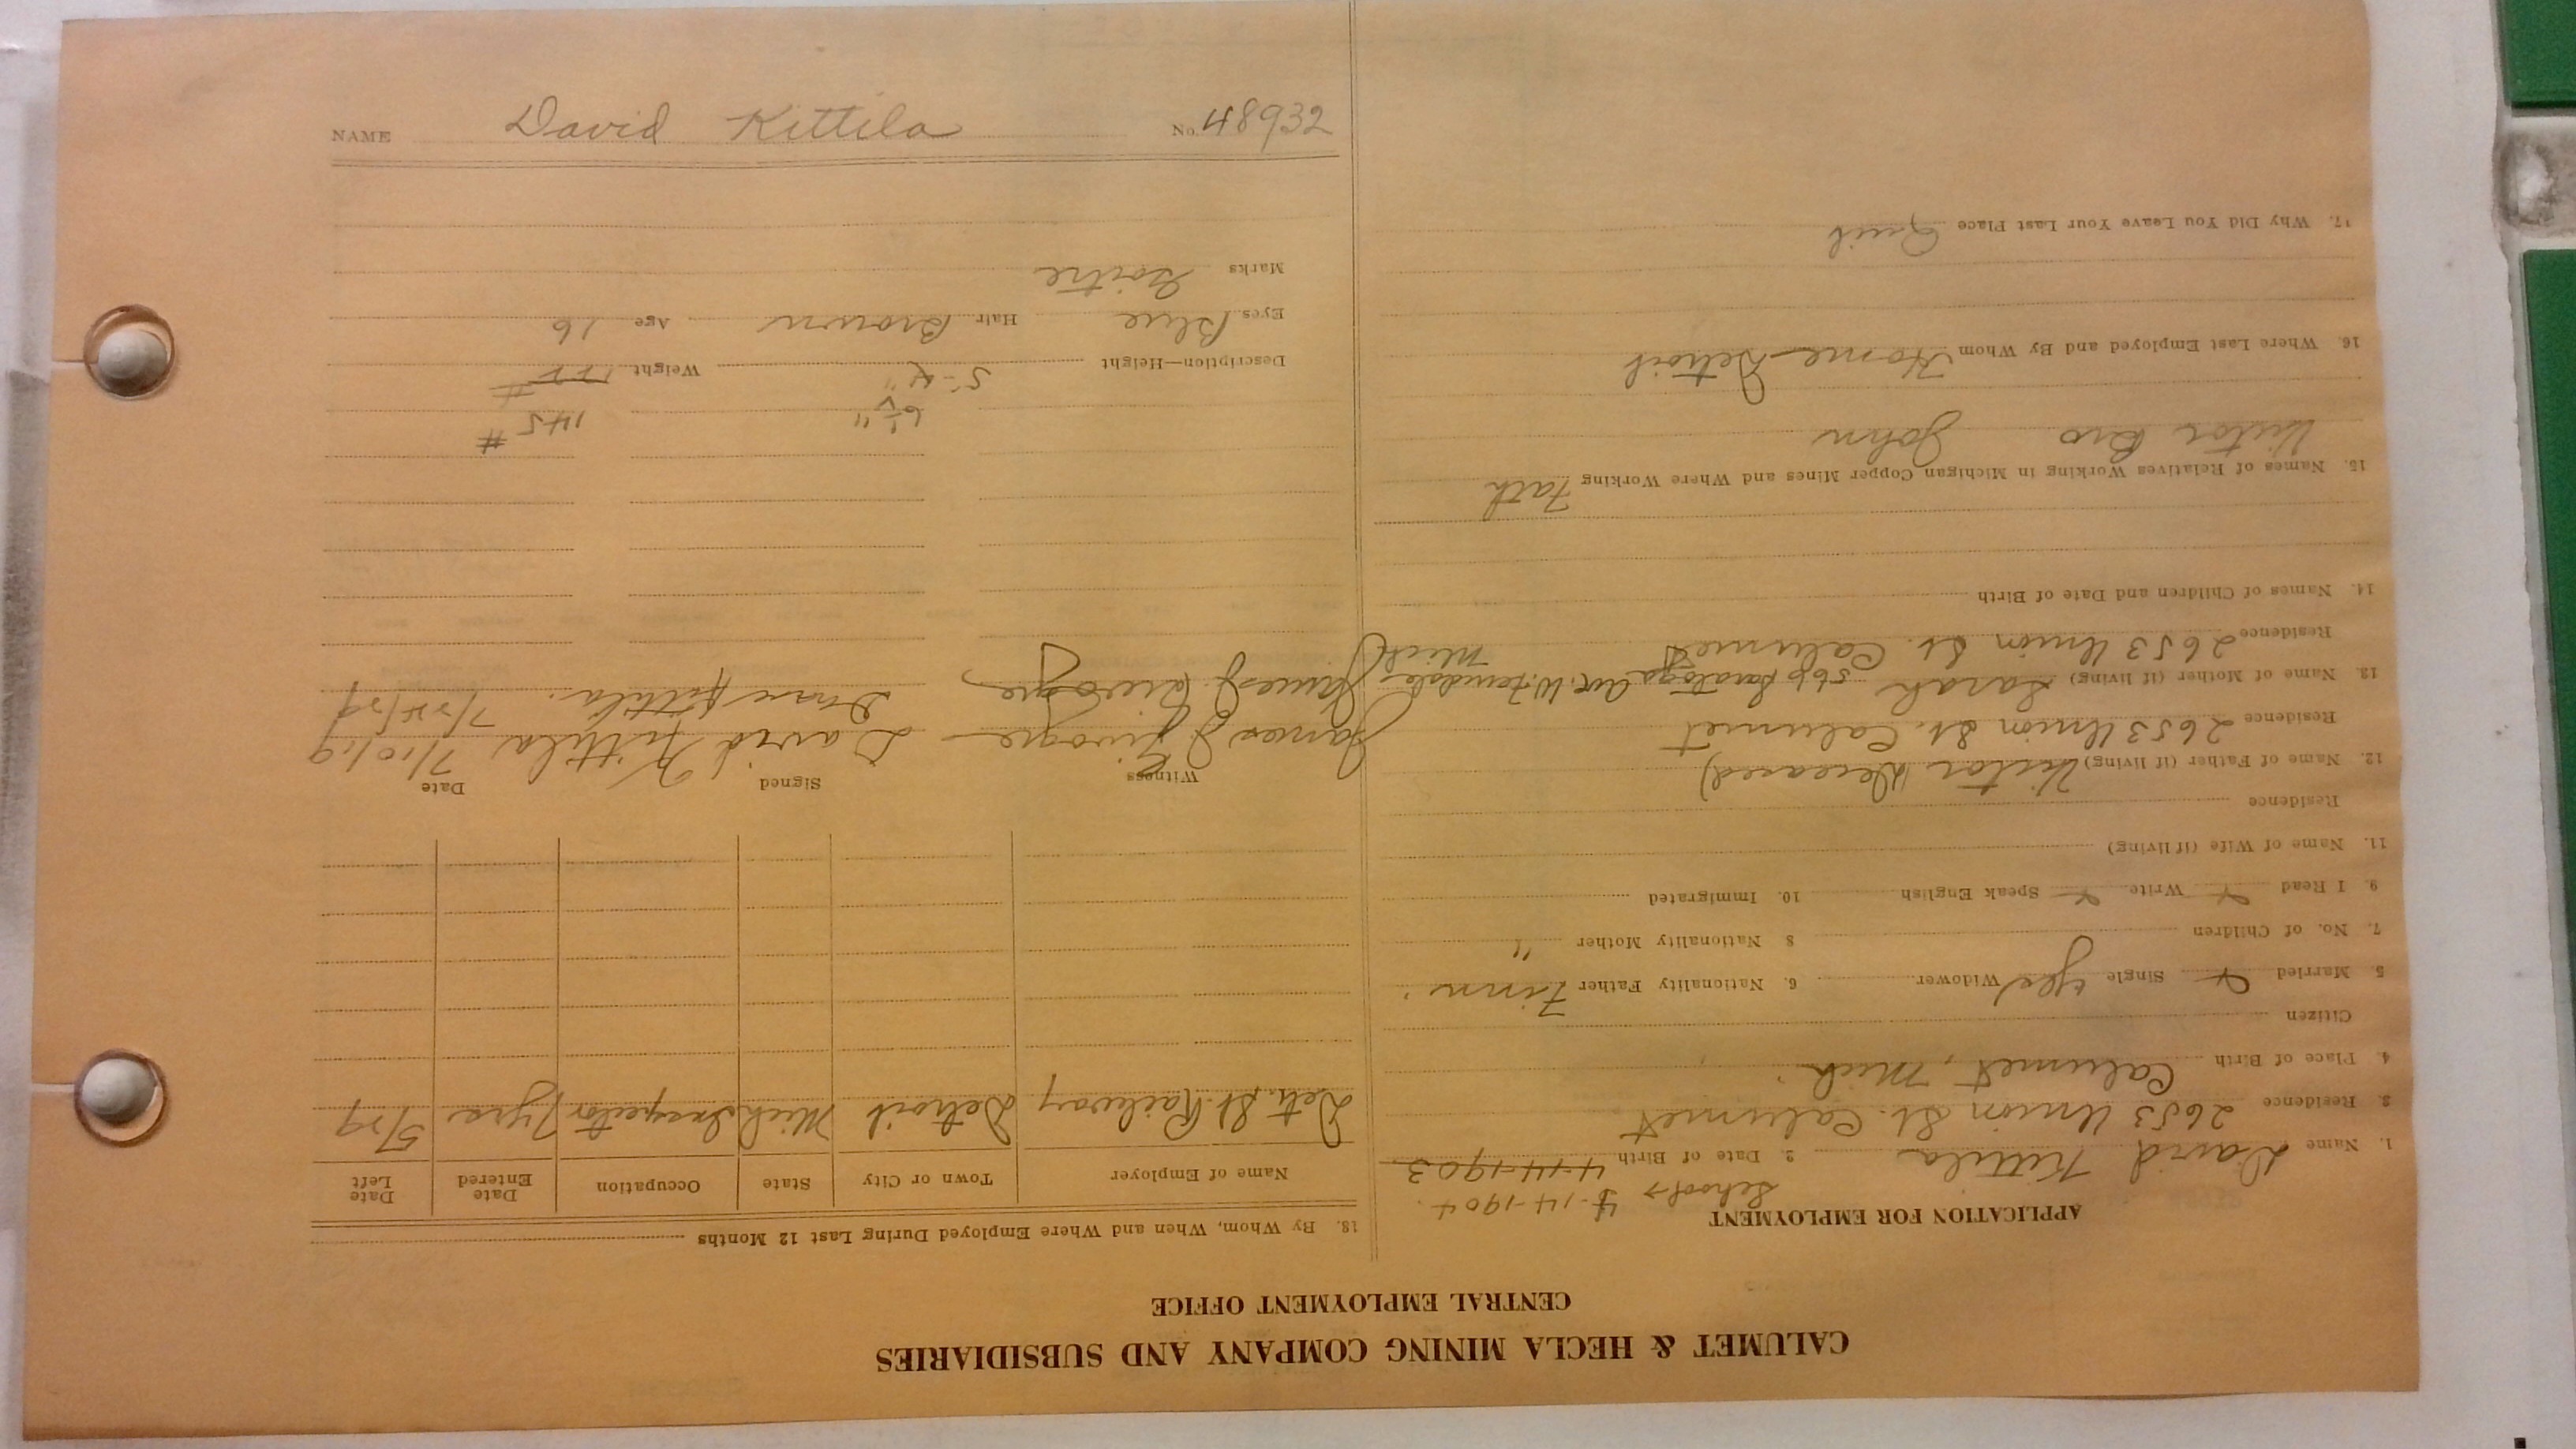 CALUMET & HECLA MINING COMPANY AND SUBSIDIARIES
CENTRAL EMPLOYMENT OFFICE
APPLICATION FOR EMPLOYMENT
School → 4-14-1904
1. Name David Kittila 2. Date of Birth 4-14-1903
3. Residence 2653 Union St. Calumet
4. Place of Birth Calumet, Mich.
Citizen
5. Married x Single yes Widower 6. Nationality Father Finn
7. No. of Children 8 Nationality Mother "
9. I Read x Write x Speak English 10. Immigrated
11. Name of Wife (if living)
Residence
12. Name of Father (if living) Victor (Deceased)
Residence 2653 Union St. Calumet
13. Name of Mother (if living) Sarah Saratoga Ave. W. Ferndale, Mich
Residence 2653 Union St. Calumet
14. Names of Children and Date of Birth
15. Names of Relatives Working in Michigan Copper Mines and Where Working Fath
Victor Bro John
16. Where Last Employed and By Whom Home - Detroit
17. Why Did You Leave Your Last Place Quit
18. By Whom, When and Where Employed During Last 12 Months
Name of Employer Town or City State Occupation Date Entered Date Left
Det. St. Railway Detroit Mich Inspector 7 yrs 5/29
Witness Signed Date
James J. David Kittila 7/10/19
James J. Dave Kittila. 7/24/29
6½" 145 #
Description—Height 5'-4" Weight 122 #
Eyes Blue Hair Brown Age 16
Marks Goitre
NAME David Kittila No. 48932